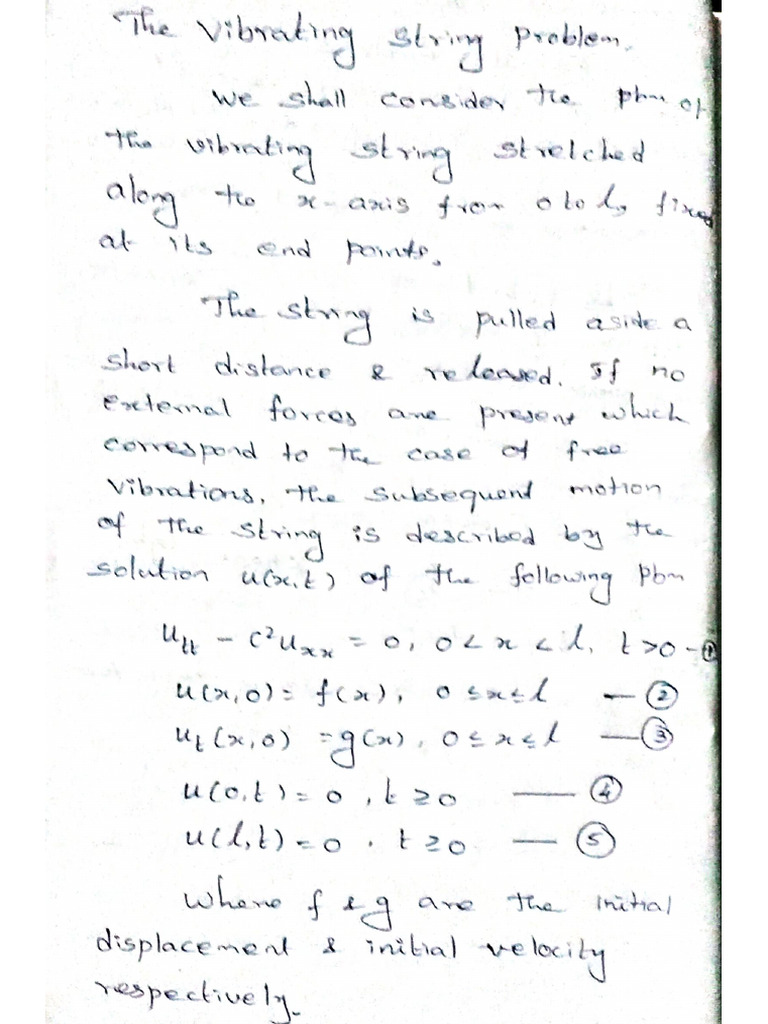 The Vibrating String Problem.
We shall consider the pbm of
the vibrating string stretched
along the x-axis from 0 to l, fixed
at its end points.
The string is pulled aside a
short distance & released. If no
external forces are present which
correspond to the case of free
vibrations, the subsequent motion
of the string is described by the
solution u(x,t) of the following pbm
u_tt - c²u_xx = 0, 0 < x < l, t > 0 - ①
u(x,0) = f(x), 0 ≤ x ≤ l — ②
u_t(x,0) = g(x), 0 ≤ x ≤ l — ③
u(0,t) = 0, t ≥ 0 — ④
u(l,t) = 0, t ≥ 0 — ⑤
where f & g are the initial
displacement & initial velocity
respectively.